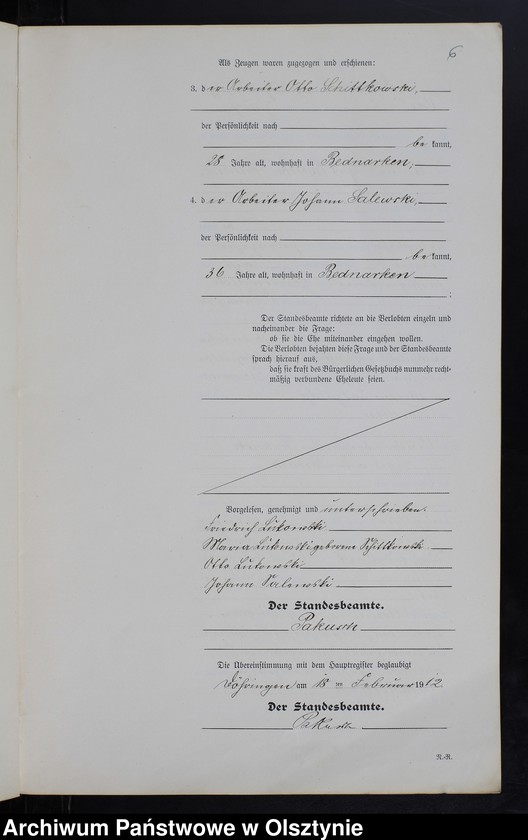 6
Als Zeugen waren zugezogen und erschienen:
3. der Arbeiter Otto Schittkowski,
der Persönlichkeit nach
be kannt,
28 Jahre alt, wohnhaft in Bednarken,
4. der Arbeiter Johann Salewski,
der Persönlichkeit nach
be kannt,
36 Jahre alt, wohnhaft in Bednarken
;
Der Standesbeamte richtete an die Verlobten einzeln und
nacheinander die Frage:
ob sie die Ehe miteinander eingehen wollen.
Die Verlobten bejahten diese Frage und der Standesbeamte
sprach hierauf aus,
daß sie kraft des Bürgerlichen Gesetzbuchs nunmehr recht-
mäßig verbundene Eheleute seien.
Vorgelesen, genehmigt und unterschrieben.
Friedrich Lukowski
Maria Lukowski geborene Schittkowski
Otto
Johann Salewski
Der Standesbeamte.
Pakusch
Die Übereinstimmung mit dem Hauptregister beglaubigt
Döhringen am 18 ten Februar 1912.
Der Standesbeamte.
Pakusch
N.-R.
Archiwum Państwowe w Olsztynie